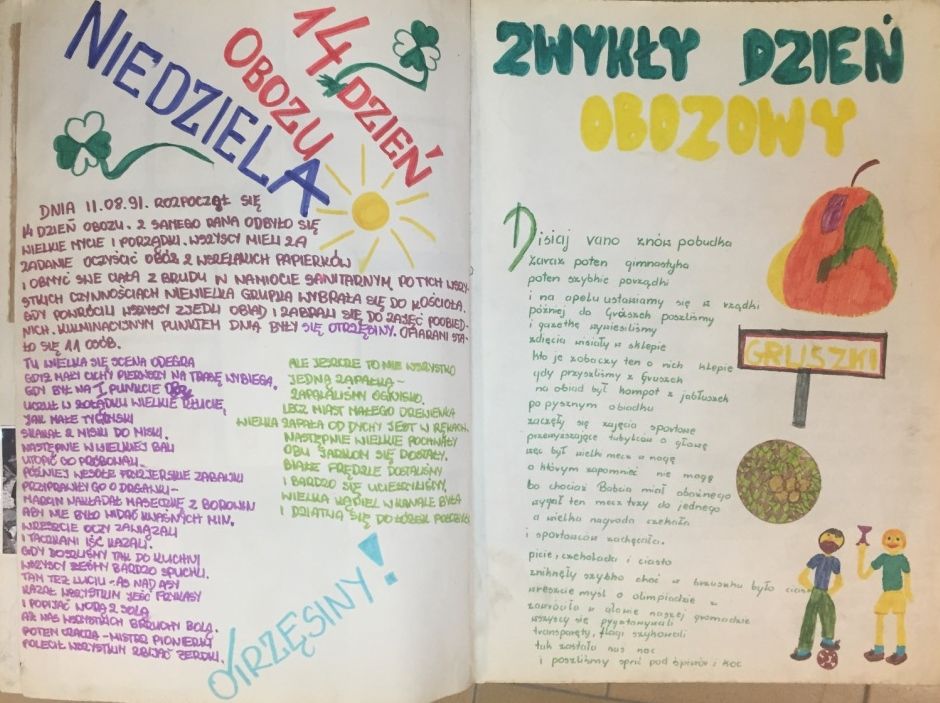 NIEDZIELA
14 DZIEŃ
OBOZU
DNIA 11.08.91. ROZPOCZĄŁ SIĘ
14 DZIEŃ OBOZU. Z SAMEGO RANA ODBYŁO SIĘ
WIELKIE MYCIE I PORZĄDKI. WSZYSCY MIELI ZA
ZADANIE OCZYŚCIĆ OBÓZ Z WSZELAKICH PAPIERKÓW
I OBMYĆ SWE CIAŁA Z BRUDU W NAMIOCIE SANITARNYM. PO TYCH WSZY-
STKICH CZYNNOŚCIACH NIEWIELKA GRUPKA WYBRAŁA SIĘ DO KOŚCIOŁA.
GDY POWRÓCILI WSZYSCY ZJEDLI OBIAD I ZABRALI SIĘ DO ZAJĘĆ POOBIED-
NICH. KULMINACYJNYM PUNKTEM DNIA BYŁY SIĘ OTRZĘSINY. OFIARAMI STA-
ŁO SIĘ 11 OSÓB.
TU WIELKA SIĘ SCENA ODEGRA
GDYŻ MAŁY CICHY PIERWSZY NA TRASĘ WYBIEGA.
GDY BYŁ NA I PUNKCIE
UCZUŁ W ŻOŁĄDKU WIELKIE KŁUCIE,
JAK MAŁE TYGRYSKI
SKAKAŁ Z MISKI DO MISKI.
NASTĘPNIE W WIELKIEJ BALI
UTOPIĆ GO PRÓBOWALI.
PÓŹNIEJ WESOŁE FRYZJERSKIE ZABAWKI
PRZYPRAWIŁY GO O DRGAWKI -
MARCIN NAKŁADAŁ MASECZKĘ Z BOROWIN
ABY NIE BYŁO WIDAĆ KWAŚNYCH MIN.
WRESZCIE OCZY ZAWIĄZALI
I TACZKAMI IŚĆ KAZALI.
GDY DOSZLIŚMY TAK DO KUCHNI
WSZYSCY ŻEŚMY BARDZO SPUCHLI.
TAM TEŻ LUCIU - AS NAD ASY
KAZAŁ WSZYSTKIM JEŚĆ FRYKASY
I POPIJAĆ WODĄ Z SOLĄ
AŻ NAS WSZYSTKICH BRZUCHY BOLĄ.
POTEM - MISTRZ PIONIERKI
POLECIŁ WSZYSTKIM ZBIJAĆ ŻERDKI.
ALE JESZCZE TO NIE WSZYSTKO
JEDNĄ ZAPAŁKĄ -
ZAPALALIŚMY OGNISKO.
LECZ MIAST MAŁEGO DREWIENKA
WIELKA ZAPAŁA OD DYCHY JEST W RĘKACH.
NASTĘPNIE WIELKIE POCHWAŁY
OBU JARKOM SIĘ DOSTAŁY.
BIAŁE FRĘDZLE DOSTALIŚMY
I BARDZO SIĘ UCIESZYLIŚMY,
WIELKA KĄPIEL W KANALE BYŁA
I DZIATWA SIĘ DO ŁÓŻEK POŁOŻYŁA
OTRZĘSINY!
ZWYKŁY DZIEŃ
OBOZOWY
Dzisiaj rano znów pobudka
zaraz potem gimnastyka
potem szybkie porządki
i na apelu ustawiamy się w rządki
później do Gruszek poszliśmy
i gazetkę wywiesiliśmy
zdjęcia wisiały w sklepie
kto je zobaczy ten o nich klepie
gdy przyszliśmy z Gruszek
na obiad był kompot z jabłuszek
po pysznym obiadku
zaczęły się zajęcia sportowe
przewyższające tubylców o głowę
więc był wielki mecz w nogę
o którym zapomnieć nie mogę
bo chociaż Babcia miał obolałego
wygrał ten mecz trzy do jednego
a wielka nagroda czekała
i sportowców zachęcała.
picie, czekolada i ciasto
zniknęły szybko choć w brzuszku było ciasno
wreszcie myśl o olimpiadzie
zawróciła w głowie naszej gromadzie
wszyscy się przygotowywali
transparenty, flagi szykowali
tak zastała nas noc
i poszliśmy spać pod śpiwór i koc
GRUSZKI